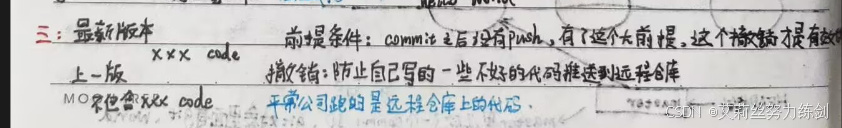 三：最新版本
xxx code
前提条件：commit之后没有push，有了这个大前提，这个撤销才是有效的
上一版
撤销：防止自己写的一些不好的代码推送到远程仓库
不包含xxx code
平常公司跑的是远程仓库上的代码.
CSDN @艾莉丝努力练剑